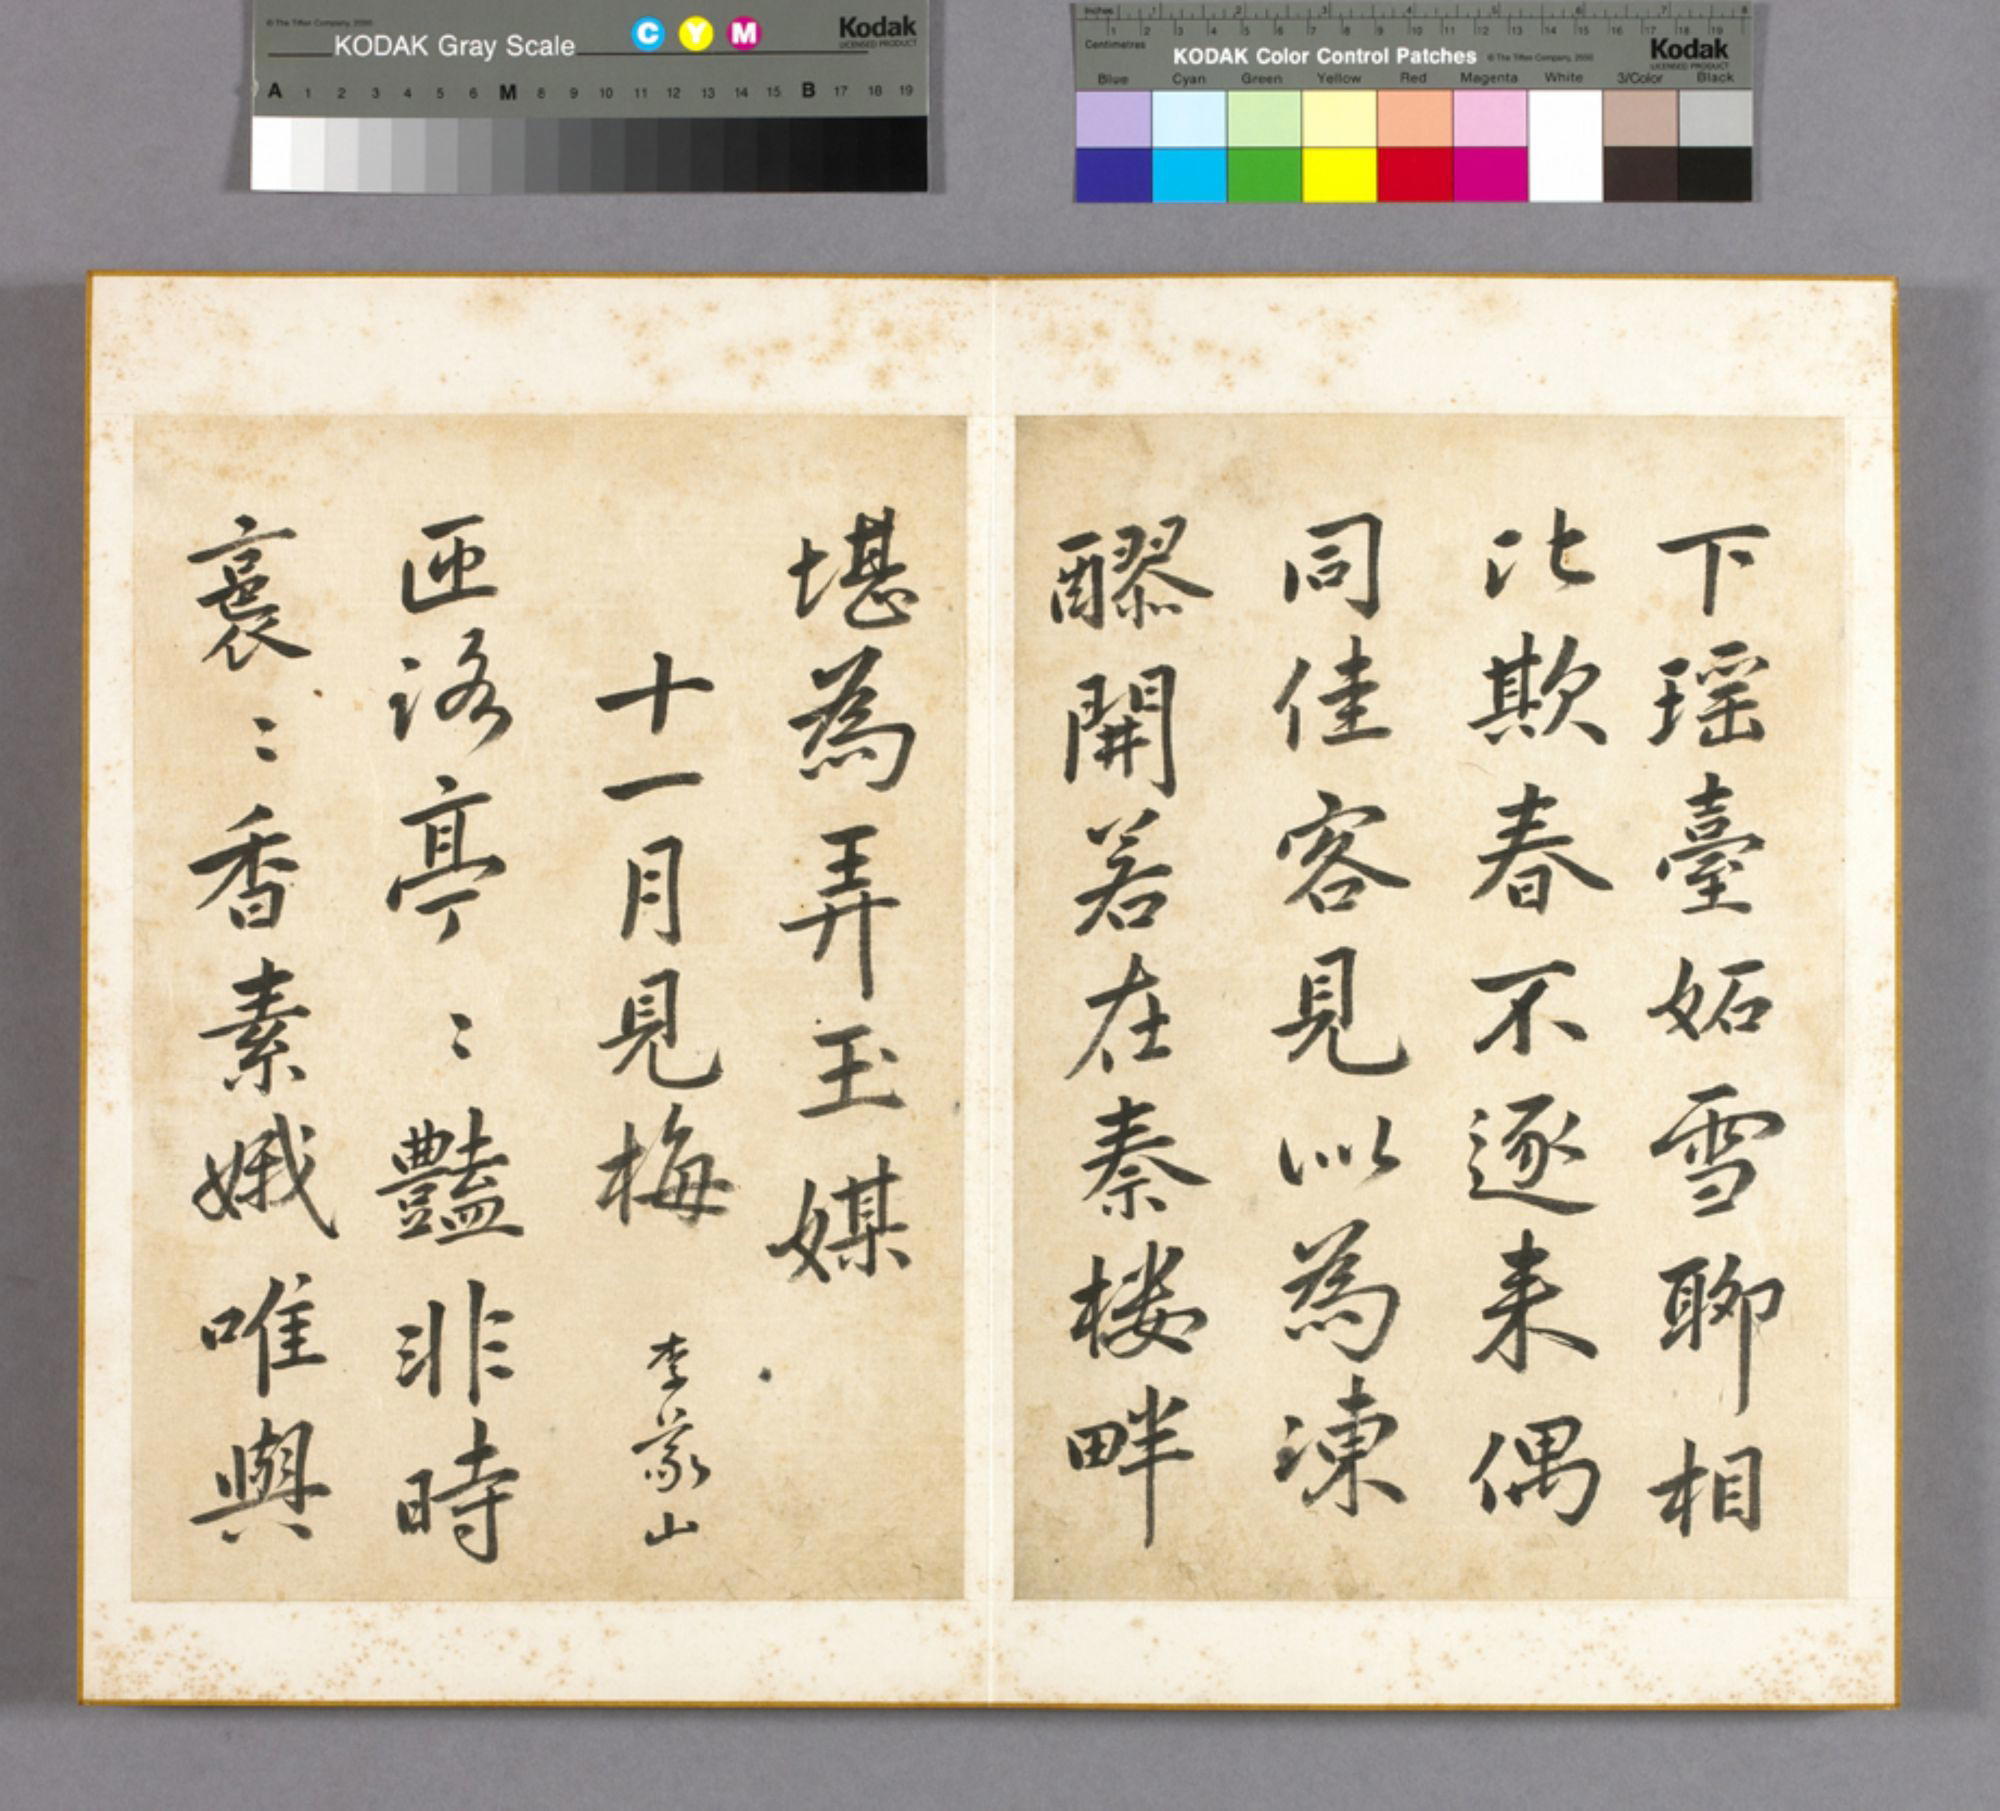 © The Tiffen Company, 2000
KODAK Gray Scale
C Y M
Kodak
LICENSED PRODUCT
A 1 2 3 4 5 6 M 8 9 10 11 12 13 14 15 B 17 18 19
Inches 1 2 3 4 5 6 7 8
Centimetres 1 2 3 4 5 6 7 8 9 10 11 12 13 14 15 16 17 18 19
KODAK Color Control Patches
© The Tiffen Company, 2000
Kodak
LICENSED PRODUCT
Blue Cyan Green Yellow Red Magenta White 3/Color Black
下瑶臺妬雪聊相
比欺春不逐来偶
同佳客見似為凍
醪開若在秦楼畔
堪為弄玉媒
十一月見梅 李義山
匝路亭〻豔非時
裛〻香素娥唯與